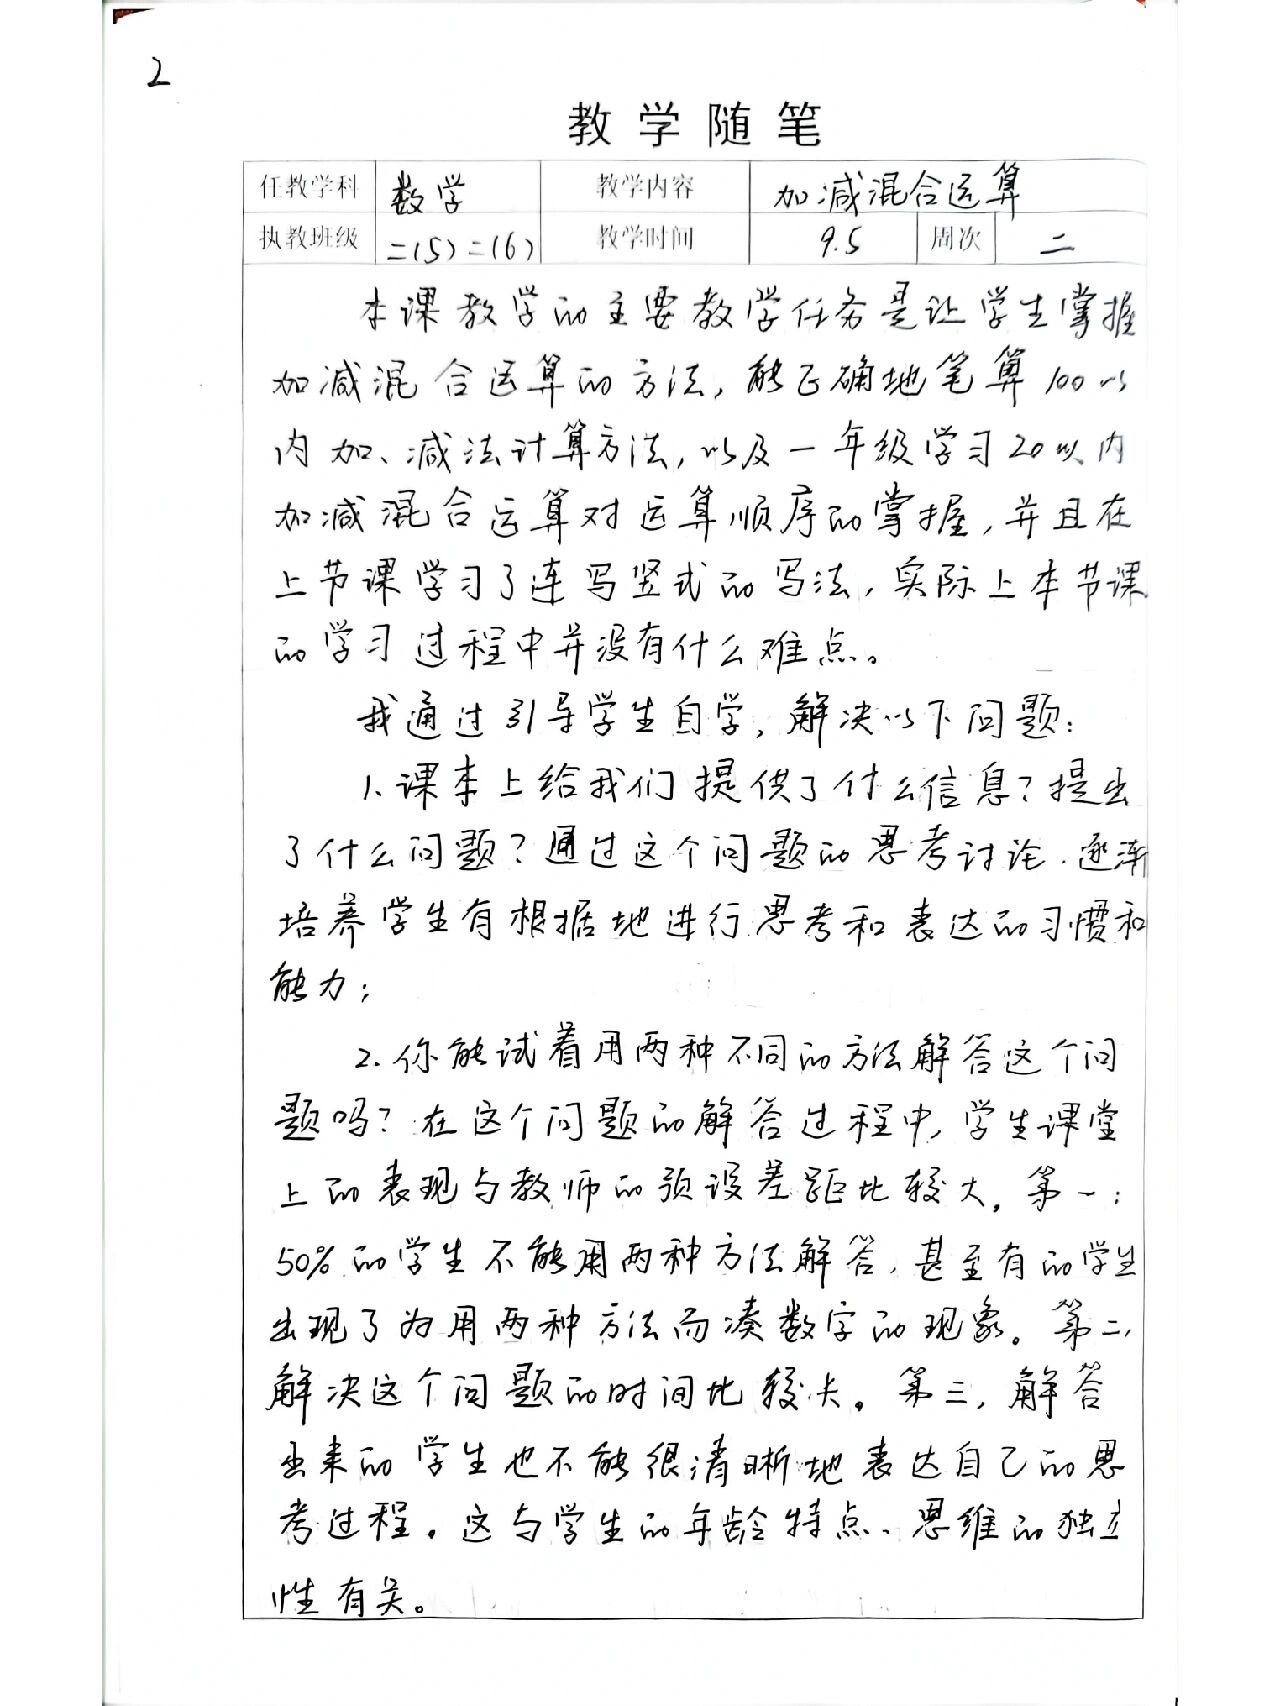 2
教学随笔
任教学科 数学 教学内容 加减混合运算
执教班级 二(5) 二(6) 教学时间 9.5 周次 二
本课教学的主要教学任务是让学生掌握
加减混合运算的方法，能正确地笔算100以
内加、减法计算方法，以及一年级学习20以内
加减混合运算对运算顺序的掌握，并且在
上节课学习了连写竖式的写法，实际上本节课
的学习过程中并没有什么难点。
我通过引导学生自学，解决以下问题：
1、课本上给我们提供了什么信息？提出
了什么问题？通过这个问题的思考讨论，逐渐
培养学生有根据地进行思考和表达的习惯和
能力；
2.你能试着用两种不同的方法解答这个问
题吗？在这个问题的解答过程中，学生课堂
上的表现与教师的预设差距比较大。第一：
50%的学生不能用两种方法解答，甚至有的学生
出现了为用两种方法而凑数字的现象。第二，
解决这个问题的时间比较长。第三，解答
出来的学生也不能很清晰地表达自己的思
考过程。这与学生的年龄特点、思维的独立
性有关。